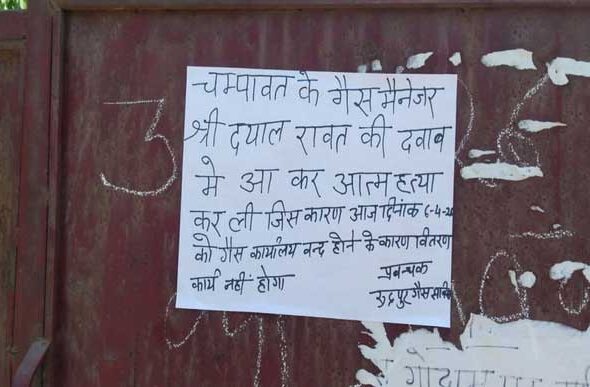 चम्पावत के गैस मैनेजर
श्री दयाल रावत की दवाव
मे आ कर आत्म हत्या
कर ली जिस कारण आज दिनांक 6-4-20
को गैस कार्यालय वन्द होने के कारण वितरण
कार्य नहीं होगा
प्रवन्धक
रुद्रपुर गैस सर्विस
3
गोदाम